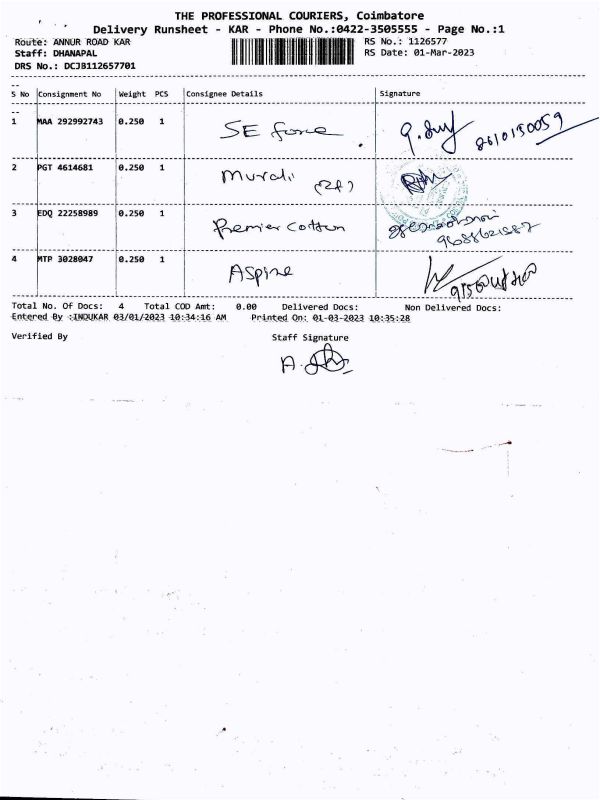 THE PROFESSIONAL COURIERS, Coimbatore
Delivery Runsheet - KAR - Phone No.:0422-3505555 - Page No.:1
Route: ANNUR ROAD KAR RS No.: 1126577
Staff: DHANAPAL RS Date: 01-Mar-2023
DRS No.: DCJB112657701
S No Consignment No Weight PCS Consignee Details Signature
1 MAA 292992743 0.250 1 SE force 8610150059
2 PGT 4614681 0.250 1 Murali
3 EDQ 22258989 0.250 1 Premier Cotton
4 MTP 3028047 0.250 1 Aspire
Total No. Of Docs: 4 Total COD Amt: 0.00 Delivered Docs: Non Delivered Docs:
Entered By :INDUKAR 03/01/2023 10:34:16 AM Printed On: 01-03-2023 10:35:28
Verified By Staff Signature